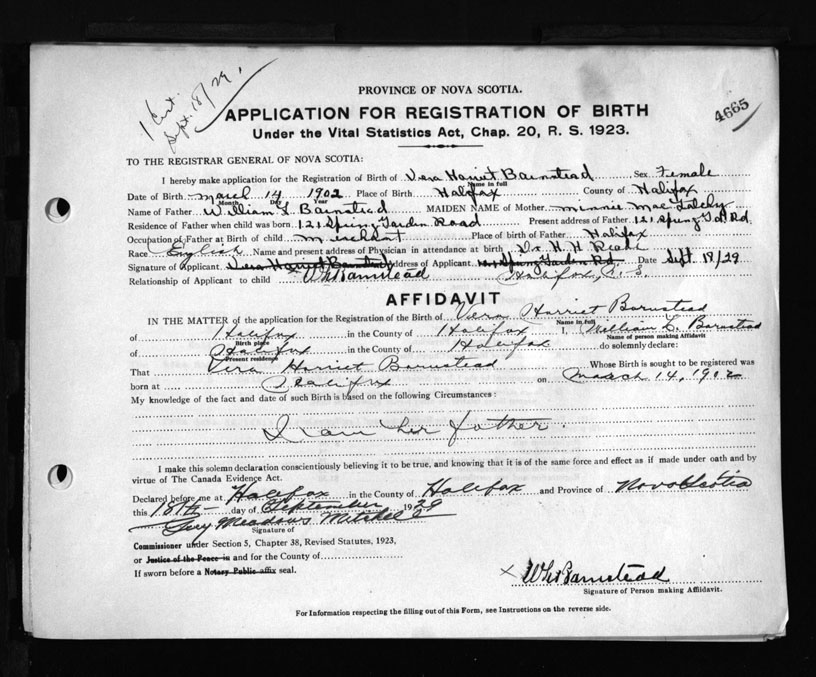 1 Cert.
Sept. 18/29.
4665
PROVINCE OF NOVA SCOTIA.
APPLICATION FOR REGISTRATION OF BIRTH
Under the Vital Statistics Act, Chap. 20, R. S. 1923.
TO THE REGISTRAR GENERAL OF NOVA SCOTIA:
I hereby make application for the Registration of Birth of Vera Harriet Barnstead Sex Female
Name in full
Date of Birth March 14 1902 Place of Birth Halifax County of Halifax
Month Day Year
Name of Father William L Barnstead MAIDEN NAME of Mother Minnie Mac
Residence of Father when child was born 121 Spring Garden Road Present address of Father 121 Spring Gd. Rd.
Occupation of Father at Birth of child Merchant Place of birth of Father Halifax
Race English Name and present address of Physician in attendance at birth Dr. H. H. Read
Signature of Applicant Vera Harriet Barnstead Address of Applicant Spring Garden Rd. Date Sept 18/29
Relationship of Applicant to child W L Barnstead Halifax, N. S.
AFFIDAVIT
IN THE MATTER of the application for the Registration of the Birth of Vera Harriet Barnstead
Name in full
of Halifax in the County of Halifax I, William L. Barnstead
Birth place Name of person making Affidavit
of Halifax in the County of Halifax do solemnly declare:
Present residence
That Vera Harriet Barnstead Whose Birth is sought to be registered was
born at Halifax on March 14, 1902
My knowledge of the fact and date of such Birth is based on the following Circumstances:
I am her father.
I make this solemn declaration conscientiously believing it to be true, and knowing that it is of the same force and effect as if made under oath and by
virtue of The Canada Evidence Act.
Declared before me at Halifax in the County of Halifax and Province of Nova Scotia
this 18th day of September 1929
Guy Meadows Mitchell
Signature of
Commissioner under Section 5, Chapter 38, Revised Statutes, 1923,
or Justice of the Peace in and for the County of
If sworn before a Notary Public affix seal.
x W L Barnstead
Signature of Person making Affidavit.
For Information respecting the filling out of this Form, see Instructions on the reverse side.